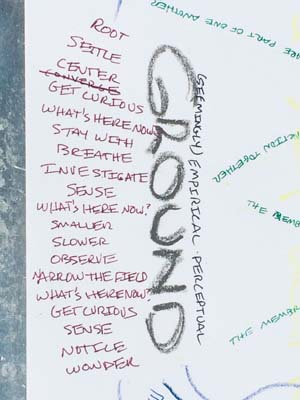 ROOT
SETTLE
CENTER
CONVERGE
GET CURIOUS
WHAT'S HERE NOW
STAY WITH
BREATHE
INVESTIGATE
SENSE
WHAT'S HERE NOW?
SMALLER
SLOWER
OBSERVE
NARROW THE FIELD
WHAT'S HERE NOW?
GET CURIOUS
SENSE
NOTICE
WONDER
GROUND
(SEEMINGLY) EMPIRICAL · PERCEPTUAL
ARE PART OF ONE ANOTHER
TOGETHER
THE
THE